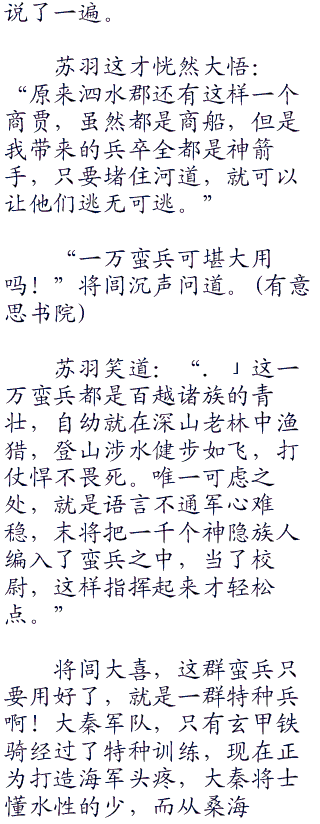 说了一遍。
苏羽这才恍然大悟：
“原来泗水郡还有这样一个
商贾，虽然都是商船，但是
我带来的兵卒全都是神箭
手，只要堵住河道，就可以
让他们逃无可逃。”
“一万蛮兵可堪大用
吗！”将闾沉声问道。（有意
思书院）
苏羽笑道：“．」这一
万蛮兵都是百越诸族的青
壮，自幼就在深山老林中渔
猎，登山涉水健步如飞，打
仗悍不畏死。唯一可虑之
处，就是语言不通军心难
稳，末将把一千个神隐族人
编入了蛮兵之中，当了校
尉，这样指挥起来才轻松
点。”
将闾大喜，这群蛮兵只
要用好了，就是一群特种兵
啊！大秦军队，只有玄甲铁
骑经过了特种训练，现在正
为打造海军头疼，大秦将士
懂水性的少，而从桑海